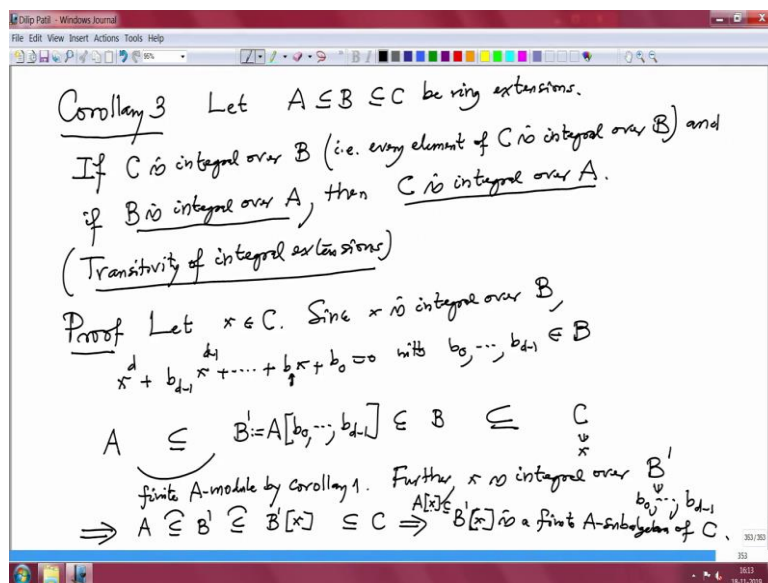 Dilip Patil - Windows Journal
File Edit View Insert Actions Tools Help
95%
Corollary 3 Let A ⊆ B ⊆ C be ring extensions.
If C is integral over B (i.e. every element of C is integral over B) and
if B is integral over A, then C is integral over A.
(Transitivity of integral extensions)
Proof Let x ∈ C. Since x is integral over B,
x^d + b_{d-1} x^{d-1} + ⋯ + b_1 x + b_0 = 0 with b_0, ⋯, b_{d-1} ∈ B
A ⊆ B' := A[b_0, ⋯, b_{d-1}] ⊆ B ⊆ C
x
finite A-module by corollary 1. Further, x is integral over B'
b_0, ⋯, b_{d-1}
⟹ A ⊆ B' ⊆ B'[x] ⊆ C ⟹ A[x] ⊆ B'[x] is a finite A-subalgebra of C.
353/353
353
16:13
18-11-2019